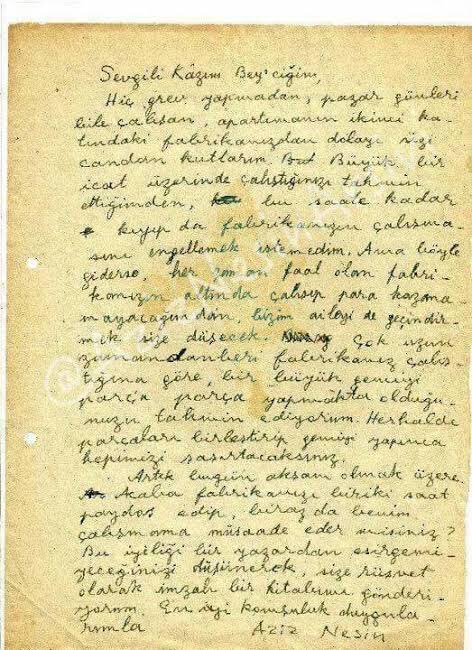 Sevgili Kâzım Bey'ciğim,
Hiç grev yapmadan, pazar günleri
bile çalışan, apartmanın ikinci ka-
tındaki fabrikanızdan dolayı sizi
candan kutlarım. Büyük bir
icat üzerinde çalıştığınızı tahmin
ettiğimden, bu saate kadar
kıyıp da fabrikanızın çalışma-
sını engellemek istemedim. Ama böyle
giderse, her zaman faal olan fabri-
kanızın altında çalışıp para kazana-
mayacağımdan, bizim aileyi de geçindir-
mek size düşecek. Çok uzun
zamandanberi fabrikanız çalış-
tığına göre, bir büyük gemiyi
parça parça yapmakta olduğu-
nuzu tahmin ediyorum. Herhalde
parçaları birleştirip gemiyi yapınca
hepimizi şaşırtacaksınız.
Artık bugün akşam olmak üzere.
Acaba fabrikanızı biriki saat
paydos edip, biraz da benim
çalışmama müsaade eder misiniz?
Bu iyiliği bir yazardan esirgemi-
yeceğinizi düşünerek, size rüşvet
olarak imzalı bir kitabımı gönderi-
yorum. En iyi komşuluk duygula-
rımla Aziz Nesin